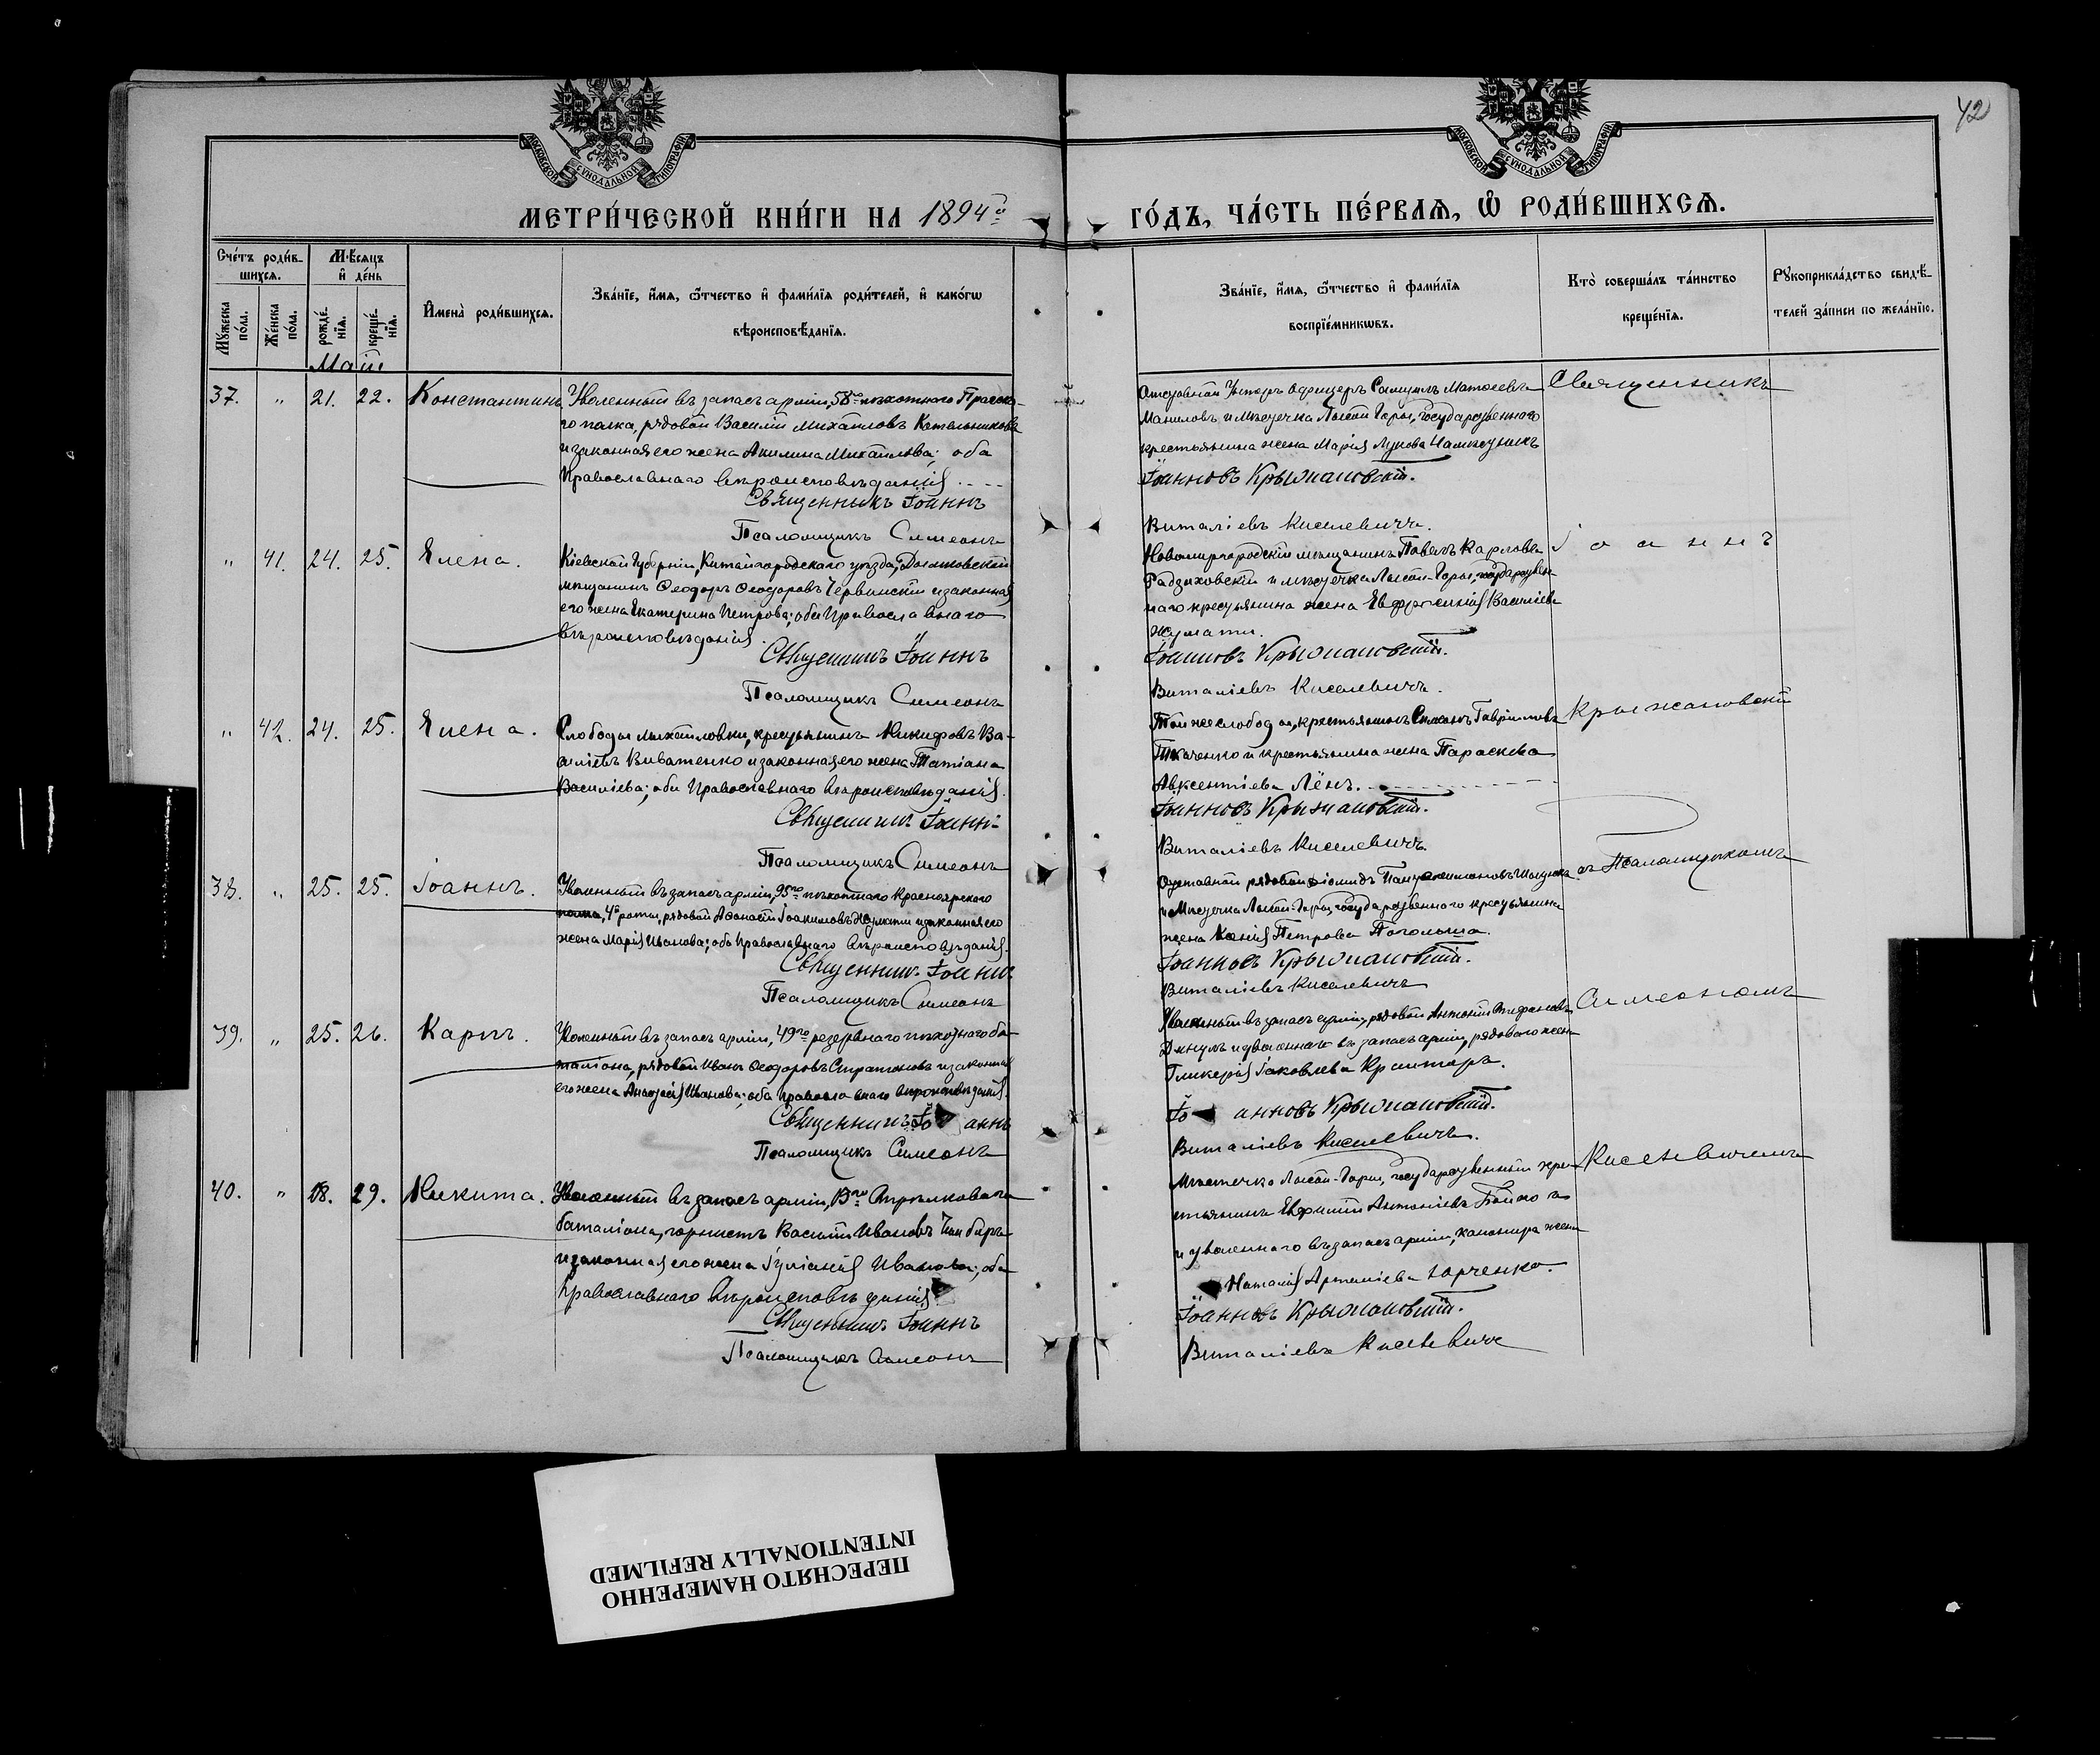 42
МОСКОВСКОЙ СУНОДАЛЬНОЙ ТИПОГРАФІИ
МОСКОВСКОЙ СУНОДАЛЬНОЙ ТИПОГРАФІИ
МЕТРИ́ЧЕСКОЙ КНИ́ГИ НА 1894й
ГО́ДЪ, ЧА́СТЬ ПЕ́РВАѦ, Ѡ РОДИ́ВШИХСѦ.
Сче́тъ роди́в-
шихсѧ.
Мꙋжеска по́ла.
Же́нска по́ла.
Мѣ́сѧцъ
и҆ де́нь
рожде́-
нїѧ.
креще́-
нїѧ.
Май
И҆мена̀ роди́вшихсѧ.
Зва́нїе, и҆́мѧ, ѻ҆́тчество и҆ фами́лїѧ роди́телей, и҆ како́гѡ
вѣроисповѣ́данїѧ.
Зва́нїе, и҆́мѧ, ѻ҆́тчество и҆ фами́лїѧ
воспрїе́мникѡвъ.
Кто̀ соверша́лъ та́инство
креще́нїѧ.
Рꙋкоприкла́дство свидѣ́-
телей за́писи по жела́нїю.
37. " 21. 22. Константинъ
Уволенный въ запасъ арміи, 58го пѣхотнаго Прагска-
го полка, рядовой Василій Михайловъ Котельниковъ
и законная его жена Акилина Михайлова; оба
Православнаго вѣроисповѣданія
Священникъ Іоаннъ
Псаломщикъ Симеонъ
Отставной Унтеръ Офицеръ Самуилъ Матѳеевъ
Маниловъ и мѣстечка Лысой Горы, государственнаго
крестьянина жена Марія Лукова
Іоанновъ Крыжановскій.
Виталіевъ Киселевичъ.
Священникъ
" 41. 24. 25. Елена.
Кіевской Губерніи,
мѣщанинъ Ѳеодоръ Ѳеодоровъ Червинскій и законная
его жена Екатерина Петрова; оба Православнаго
вѣроисповѣданія
Священникъ Іоаннъ
Псаломщикъ Симеонъ
Новомиргородскій мѣщанинъ Павелъ Карловъ
Радзиховскій и мѣстечка Лысой-Горы, государствен-
наго крестьянина жена Евфросинія Васильева
Іоанновъ Крыжановскій.
Виталіевъ Киселевичъ.
Іоаннъ
" 42. 24. 25. Елена.
Слободы Михайловки, крестьянинъ Никифоръ Ва-
силіевъ и законная его жена Татіана
Василіева; оба Православнаго вѣроисповѣданія.
Священникъ Іоаннъ
Псаломщикъ Симеонъ
Той же слободы, крестьянинъ Симеонъ Гавріиловъ
Ткаченко и крестьянина жена Параскева
Авксентіева Лёнъ.
Іоанновъ Крыжановскій.
Виталіевъ Киселевичъ.
Крыжановскій
38. " 25. 25. Іоаннъ.
Уволенный въ запасъ арміи, 95го пѣхотнаго Красноярскаго
полка, 4й роты, рядовой Аѳанасій Іоакимовъ и законная его
жена Марія Иванова; оба Православнаго вѣроисповѣданія.
Священникъ Іоаннъ
Псаломщикъ Симеонъ
Отставной рядовой Діомидъ Пантелеимоновъ
и Мѣстечка Лысой-Горы, государственнаго крестьянина
жена Ксенія Петрова
Іоанновъ Крыжановскій.
Виталіевъ Киселевичъ
съ Псаломщикомъ
39. " 25. 26. Карпъ.
Уволенный въ запасъ арміи, 49го резервнаго пѣхотнаго ба-
таліона, рядовой Иванъ Ѳеодоровъ и законная
его жена Анастасія Иванова; оба Православнаго вѣроисповѣданія.
Священникъ Іоаннъ
Псаломщикъ Симеонъ
Уволенный въ запасъ арміи, рядовой Антоній Стефановъ
и уволеннаго въ запасъ арміи, рядоваго жена
Гликерія Іаковлева
Іоанновъ Крыжановскій.
Виталіевъ Киселевичъ.
Симеономъ
40. " 18. 29. Никита.
Уволенный въ запасъ арміи, 13го Стрѣлковаго
баталіона, горнистъ Василій Ивановъ
и законная его жена Іуліанія Иванова; оба
Православнаго вѣроисповѣданія
Священникъ Іоаннъ
Псаломщикъ Симеонъ
Мѣстечка Лысой-Горы, государственный кре-
стьянинъ Евфимій Антоніевъ
и уволеннаго въ запасъ арміи, канонира жена
Наталія Артеміева Юрченко.
Іоанновъ Крыжановскій.
Виталіевъ Киселевичъ
Киселевичемъ
ПЕРЕСНЯТО НАМЕРЕННО
INTENTIONALLY REFILMED